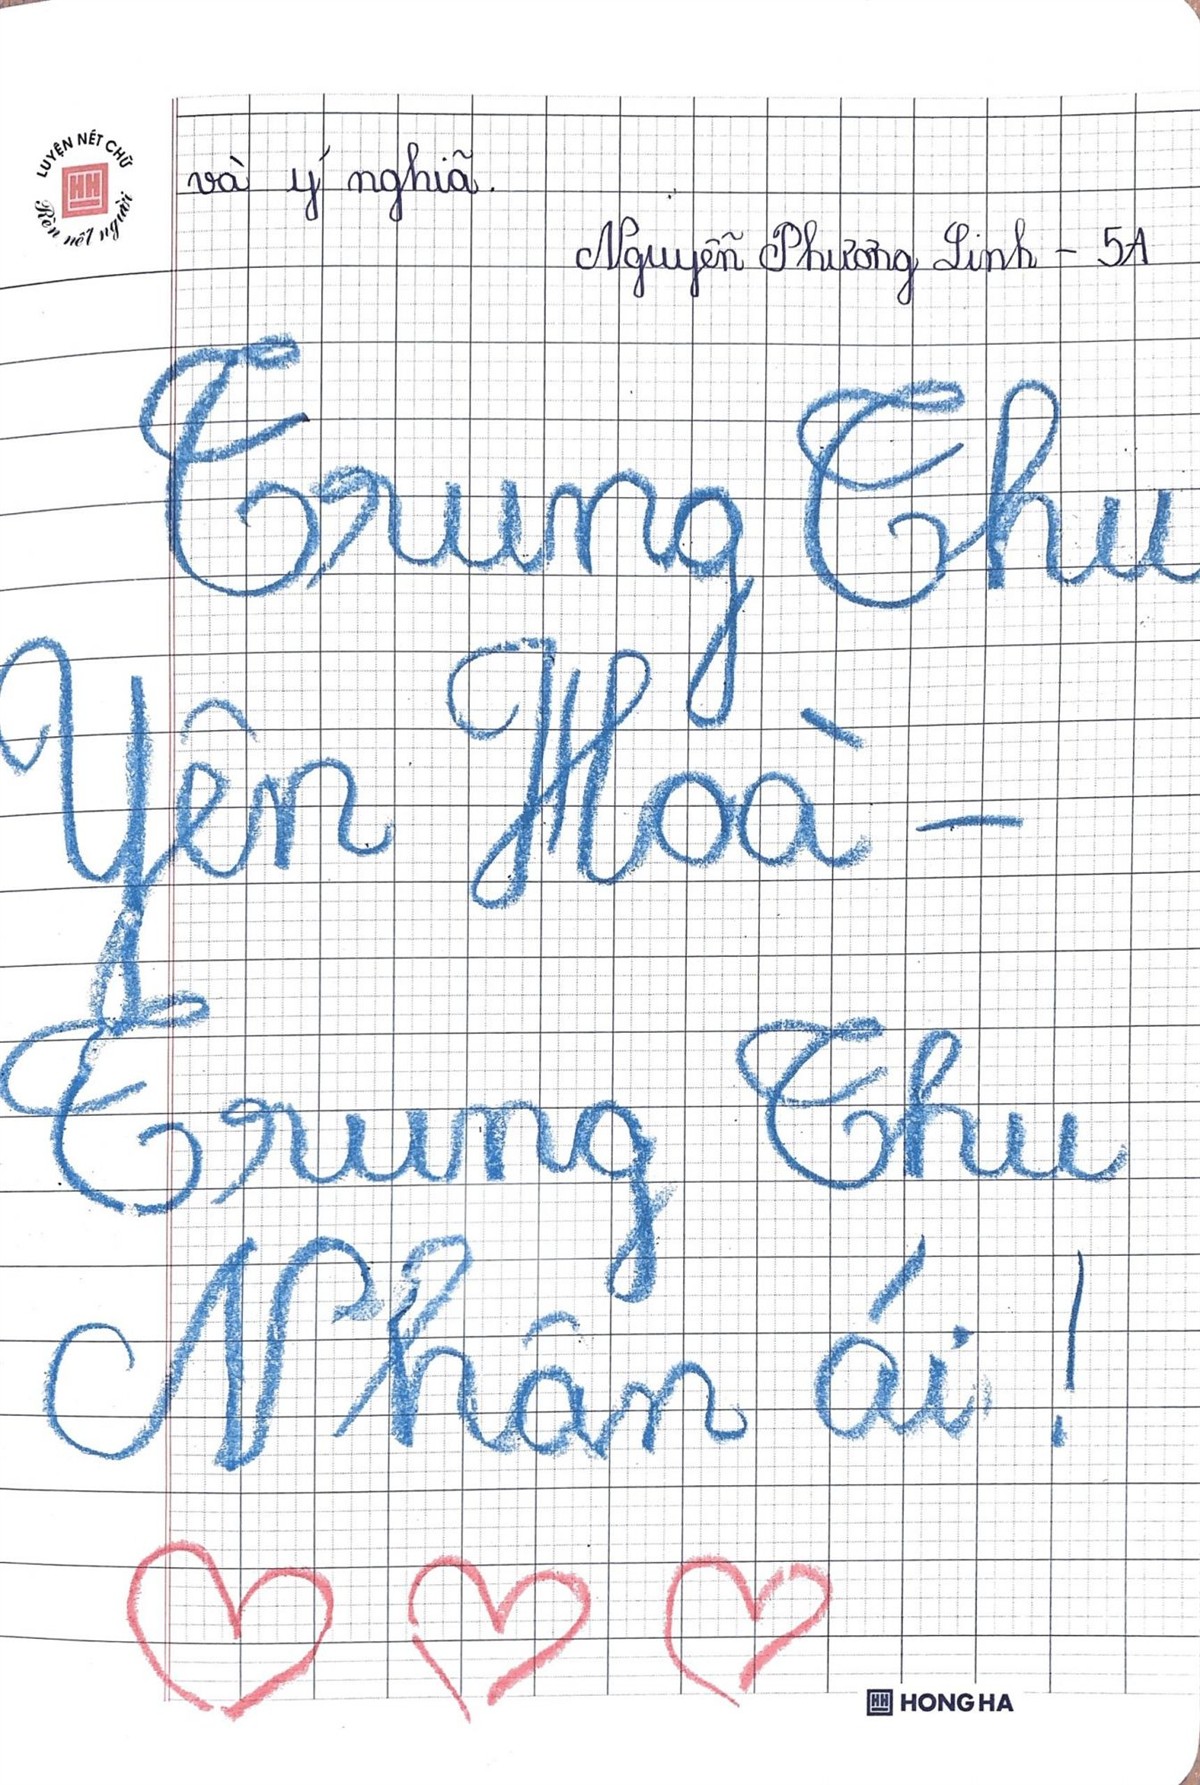 LUYỆN NÉT CHỮ
HH
Rèn nết người
và ý nghĩa.
Nguyễn Phương Linh - 5A
Trung Thu
Yên Hoà -
Trung Thu
Nhân ái !
HH HONG HA